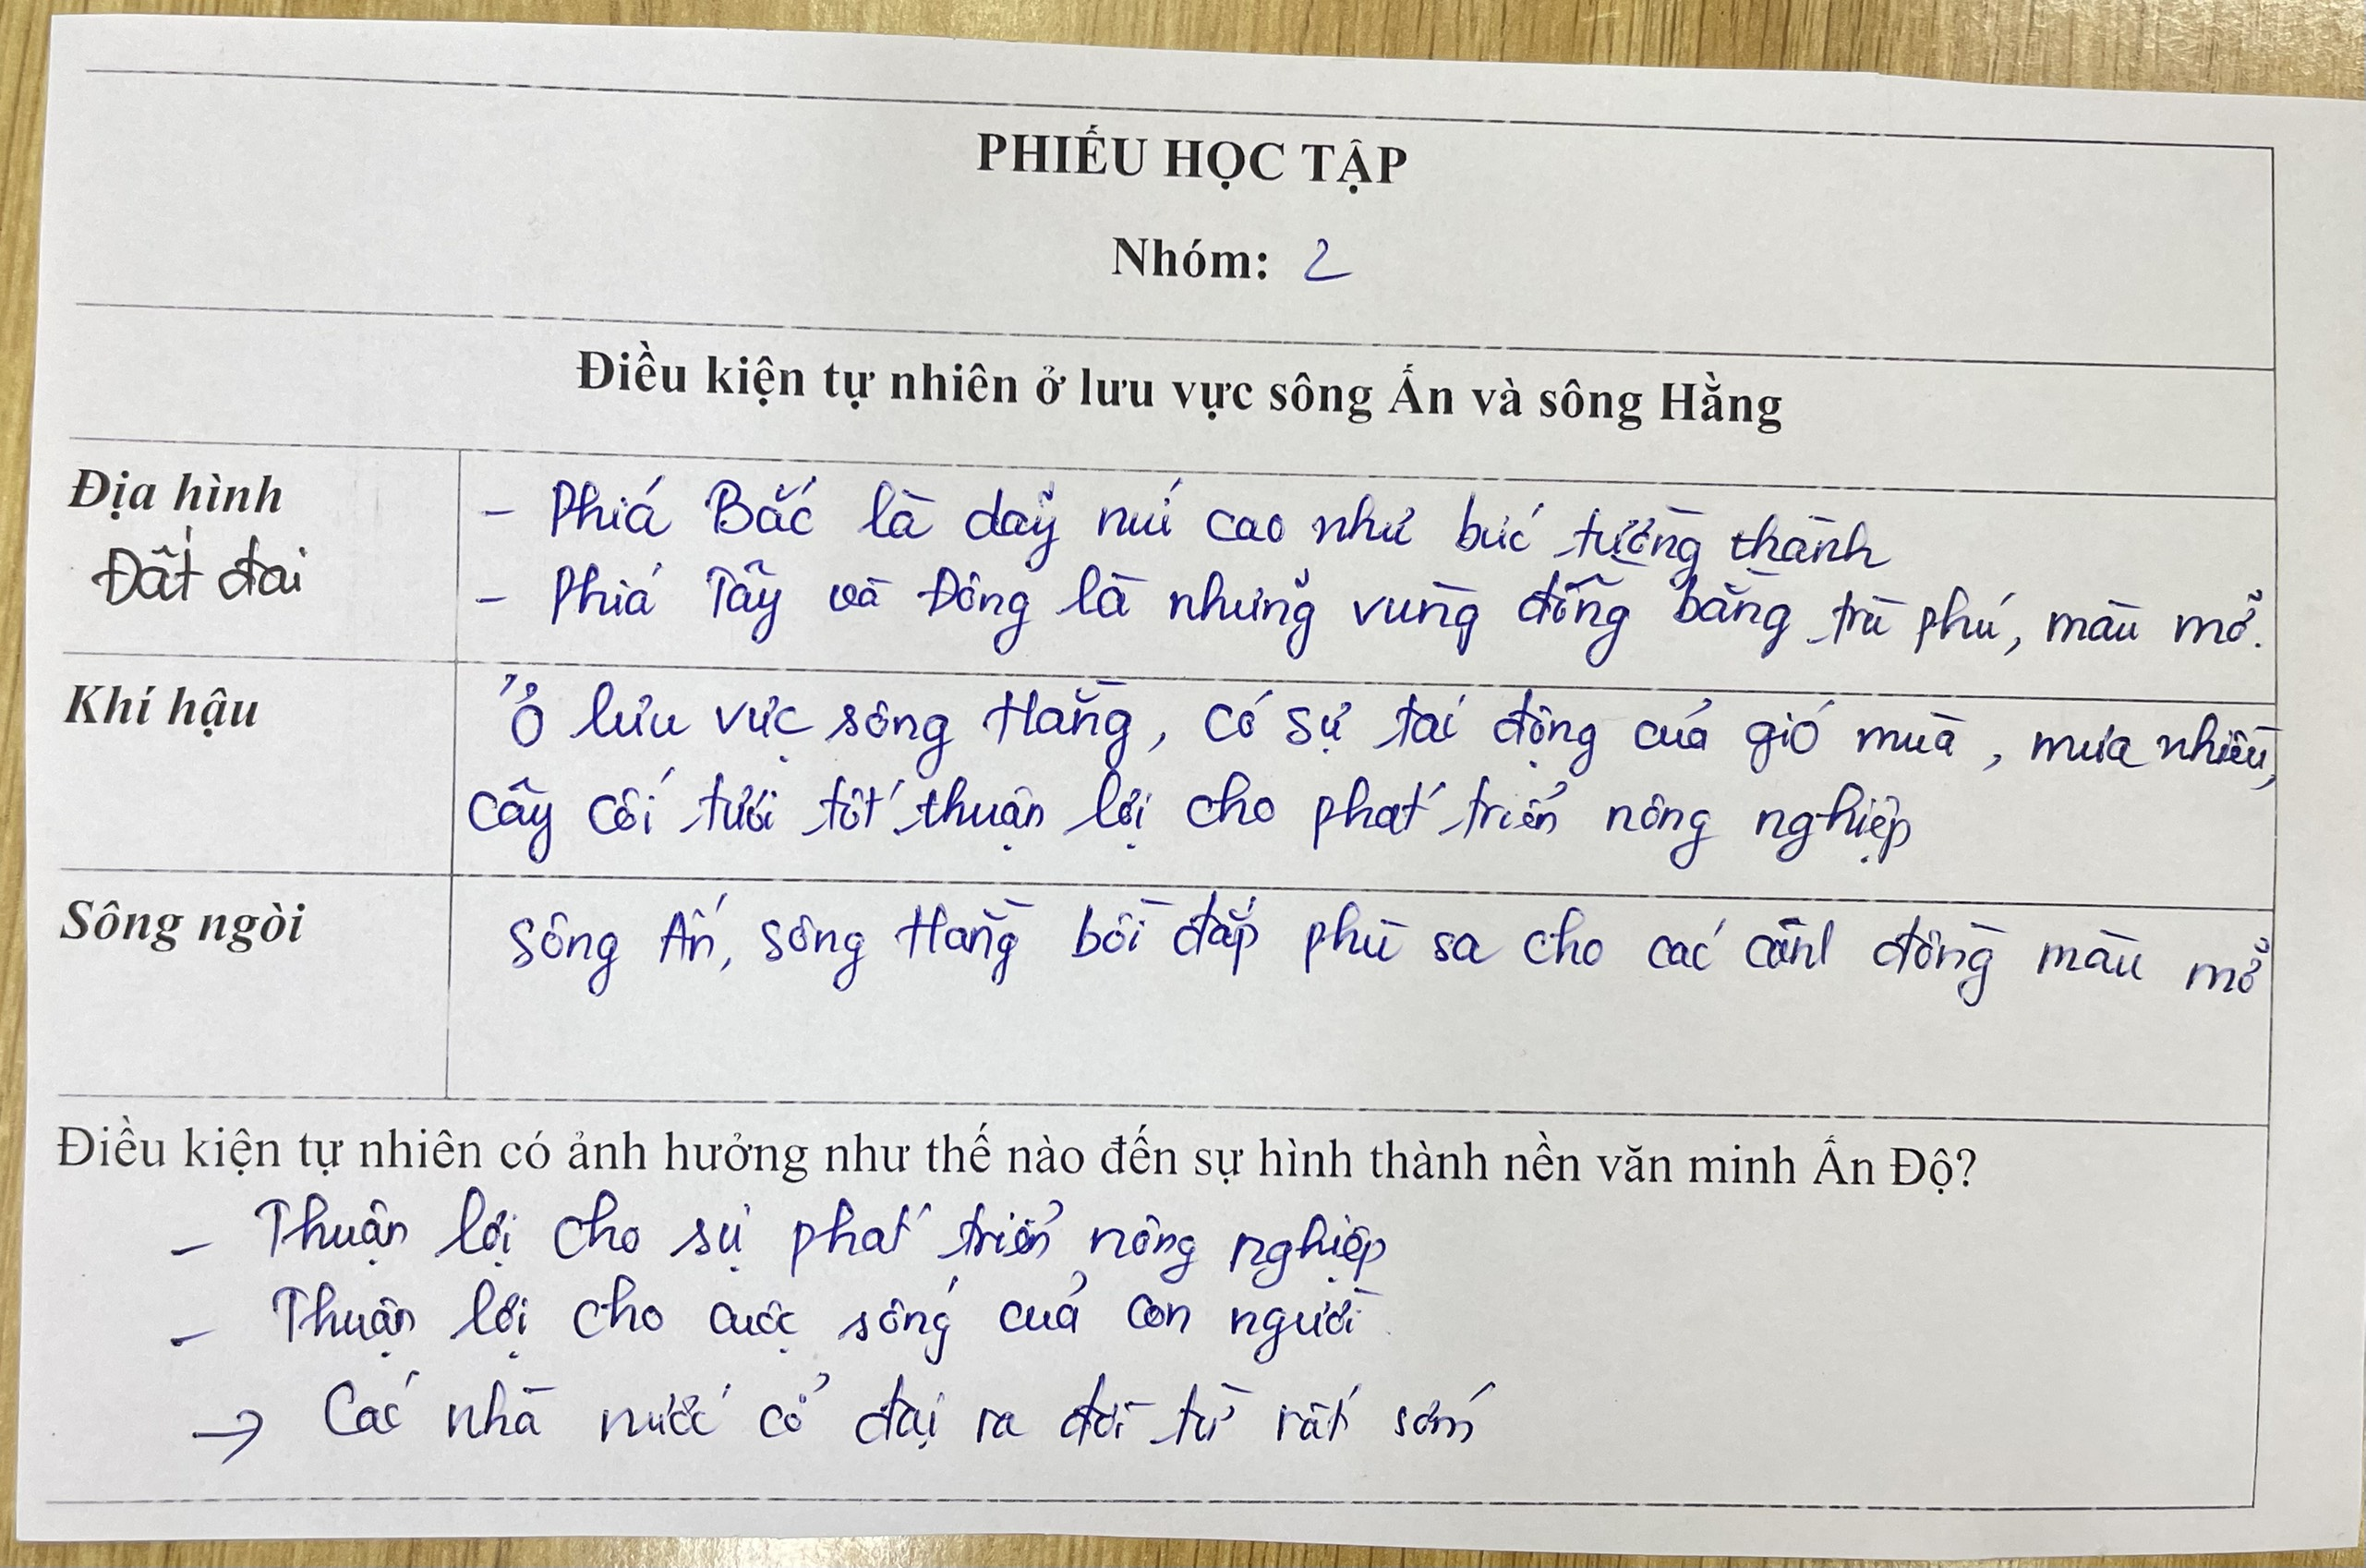 PHIẾU HỌC TẬP
Nhóm: 2
Điều kiện tự nhiên ở lưu vực sông Ấn và sông Hằng
Địa hình
Đất đai
- Phía Bắc là dãy núi cao như bức tường thành
- Phía Tây và Đông là những vùng đồng bằng trù phú, màu mỡ.
Khí hậu
Ở lưu vực sông Hằng, có sự tác động của gió mùa, mưa nhiều,
cây cối tươi tốt thuận lợi cho phát triển nông nghiệp
Sông ngòi
Sông Ấn, sông Hằng bồi đắp phù sa cho các cánh đồng màu mỡ
Điều kiện tự nhiên có ảnh hưởng như thế nào đến sự hình thành nền văn minh Ấn Độ?
- Thuận lợi cho sự phát triển nông nghiệp
- Thuận lợi cho cuộc sống của con người
→ Các nhà nước cổ đại ra đời từ rất sớm